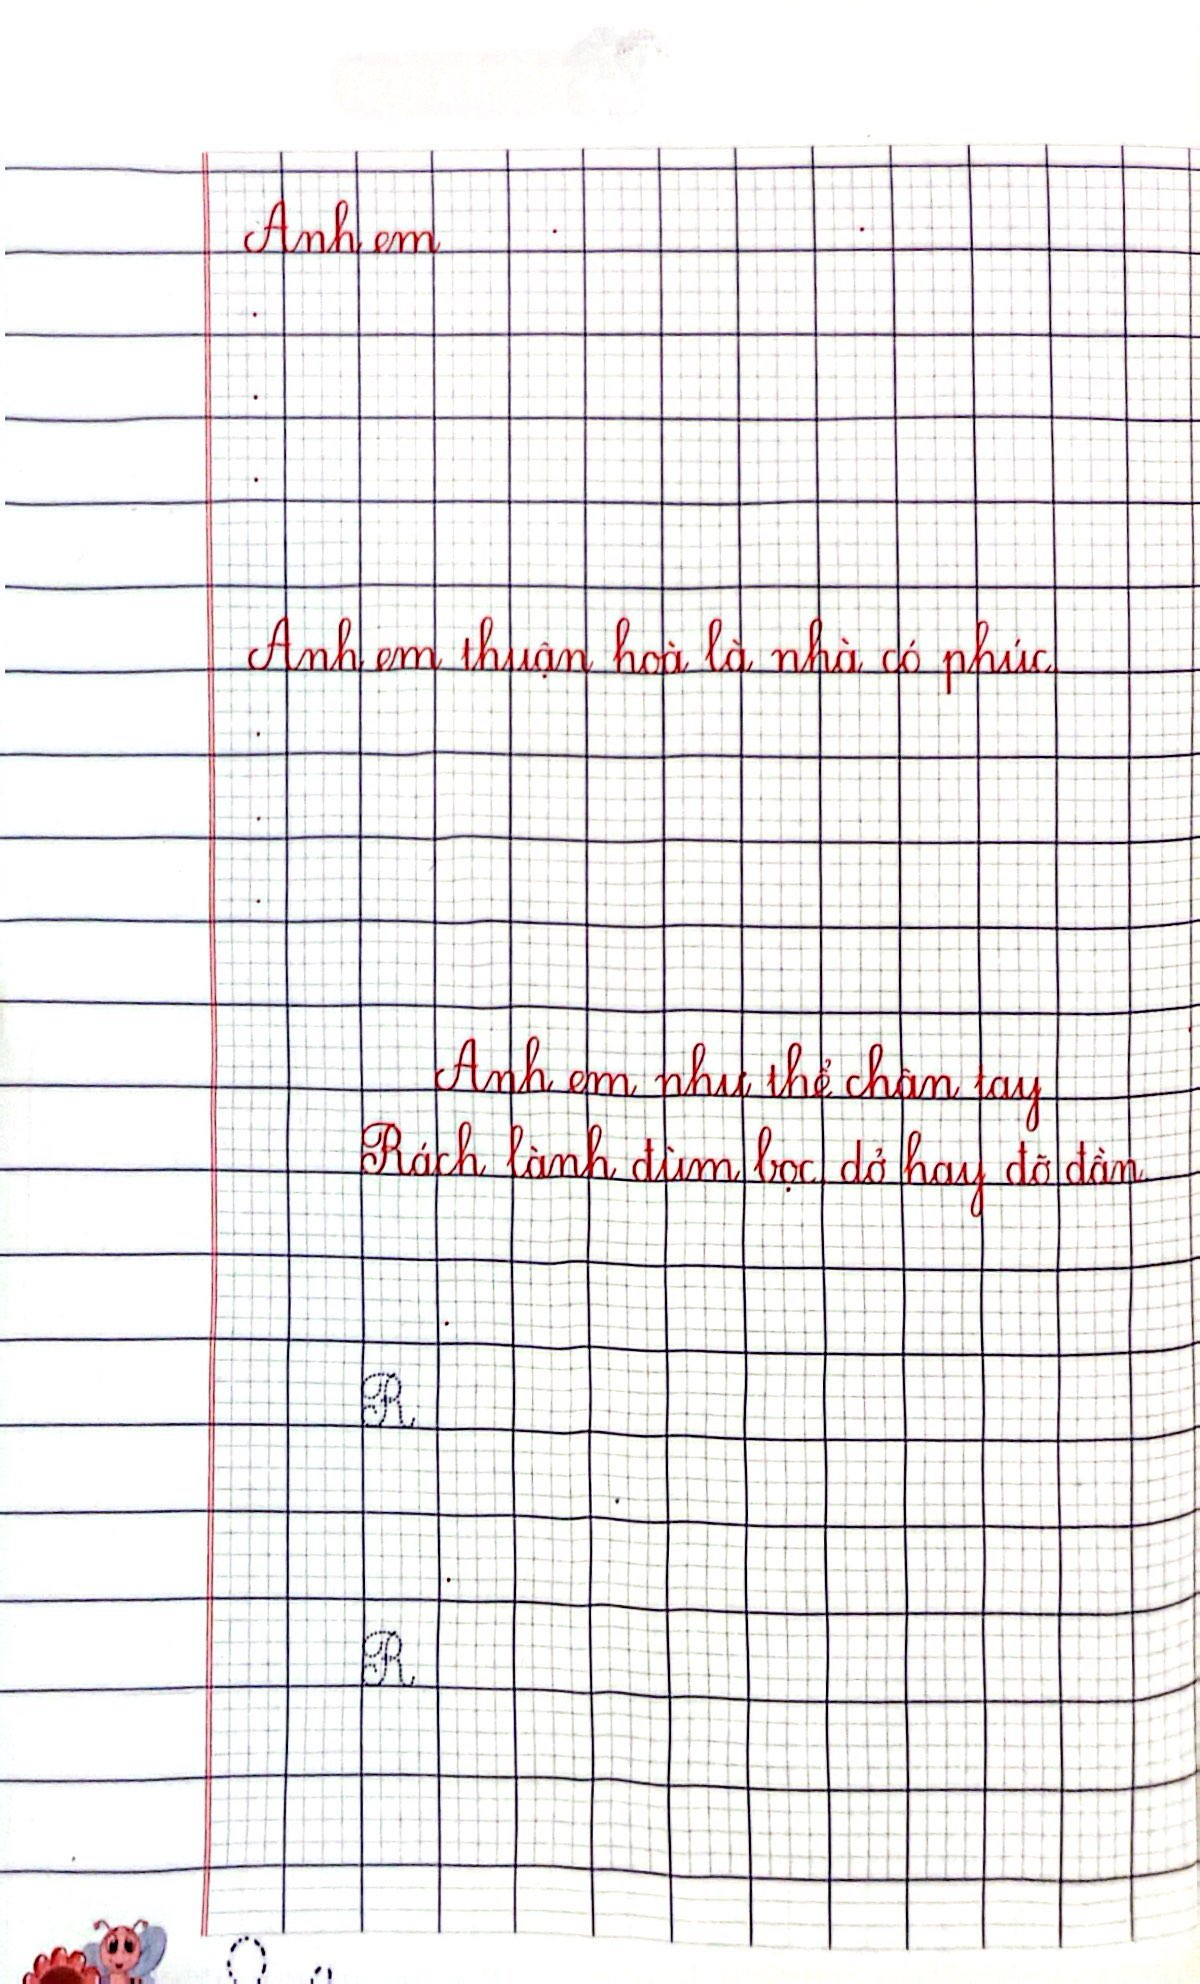 Anh em
Anh em thuận hoà là nhà có phúc
Anh em như thể chân tay
Rách lành đùm bọc dở hay đỡ đần
R
R